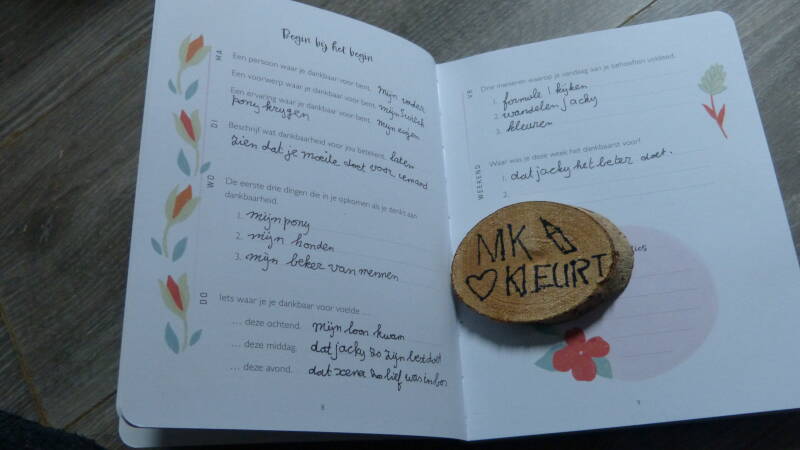 Begin bij het begin
MA
Een persoon waar je dankbaar voor bent. mijn vader
Een voorwerp waar je dankbaar voor bent. mijn switch
Een ervaring waar je dankbaar voor bent. mijn eigen
pony krijgen
DI
Beschrijf wat dankbaarheid voor jou betekent. laten
zien dat je moeite doet voor iemand
WO
De eerste drie dingen die in je opkomen als je denkt aan
dankbaarheid.
1. mijn pony
2. mijn honden
3. mijn beker van mennen
DO
Iets waar je je dankbaar voor voelde
... deze ochtend. mijn loon kwam
... deze middag. dat jacky zo zijn best doet
... deze avond. dat xena zo lief was in bos
8
VR
Drie manieren waarop je vandaag aan je behoeften voldeed.
1. formule 1 kijken
2. wandelen jacky
3. kleuren
WEEKEND
Waar was je deze week het dankbaarst voor?
1. dat jacky het beter doet.
2.
MK
KLEURT
9